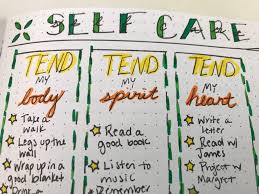 SELF CARE
TEND
my
body
Take a
walk
Legs up the
wall
Wrap up in a
blanket
TEND
my
spirit
Read a
good book
Listen to
music
Remember
TEND
my
heart
Write a
letter
Read w/
James
Project w/
Margret